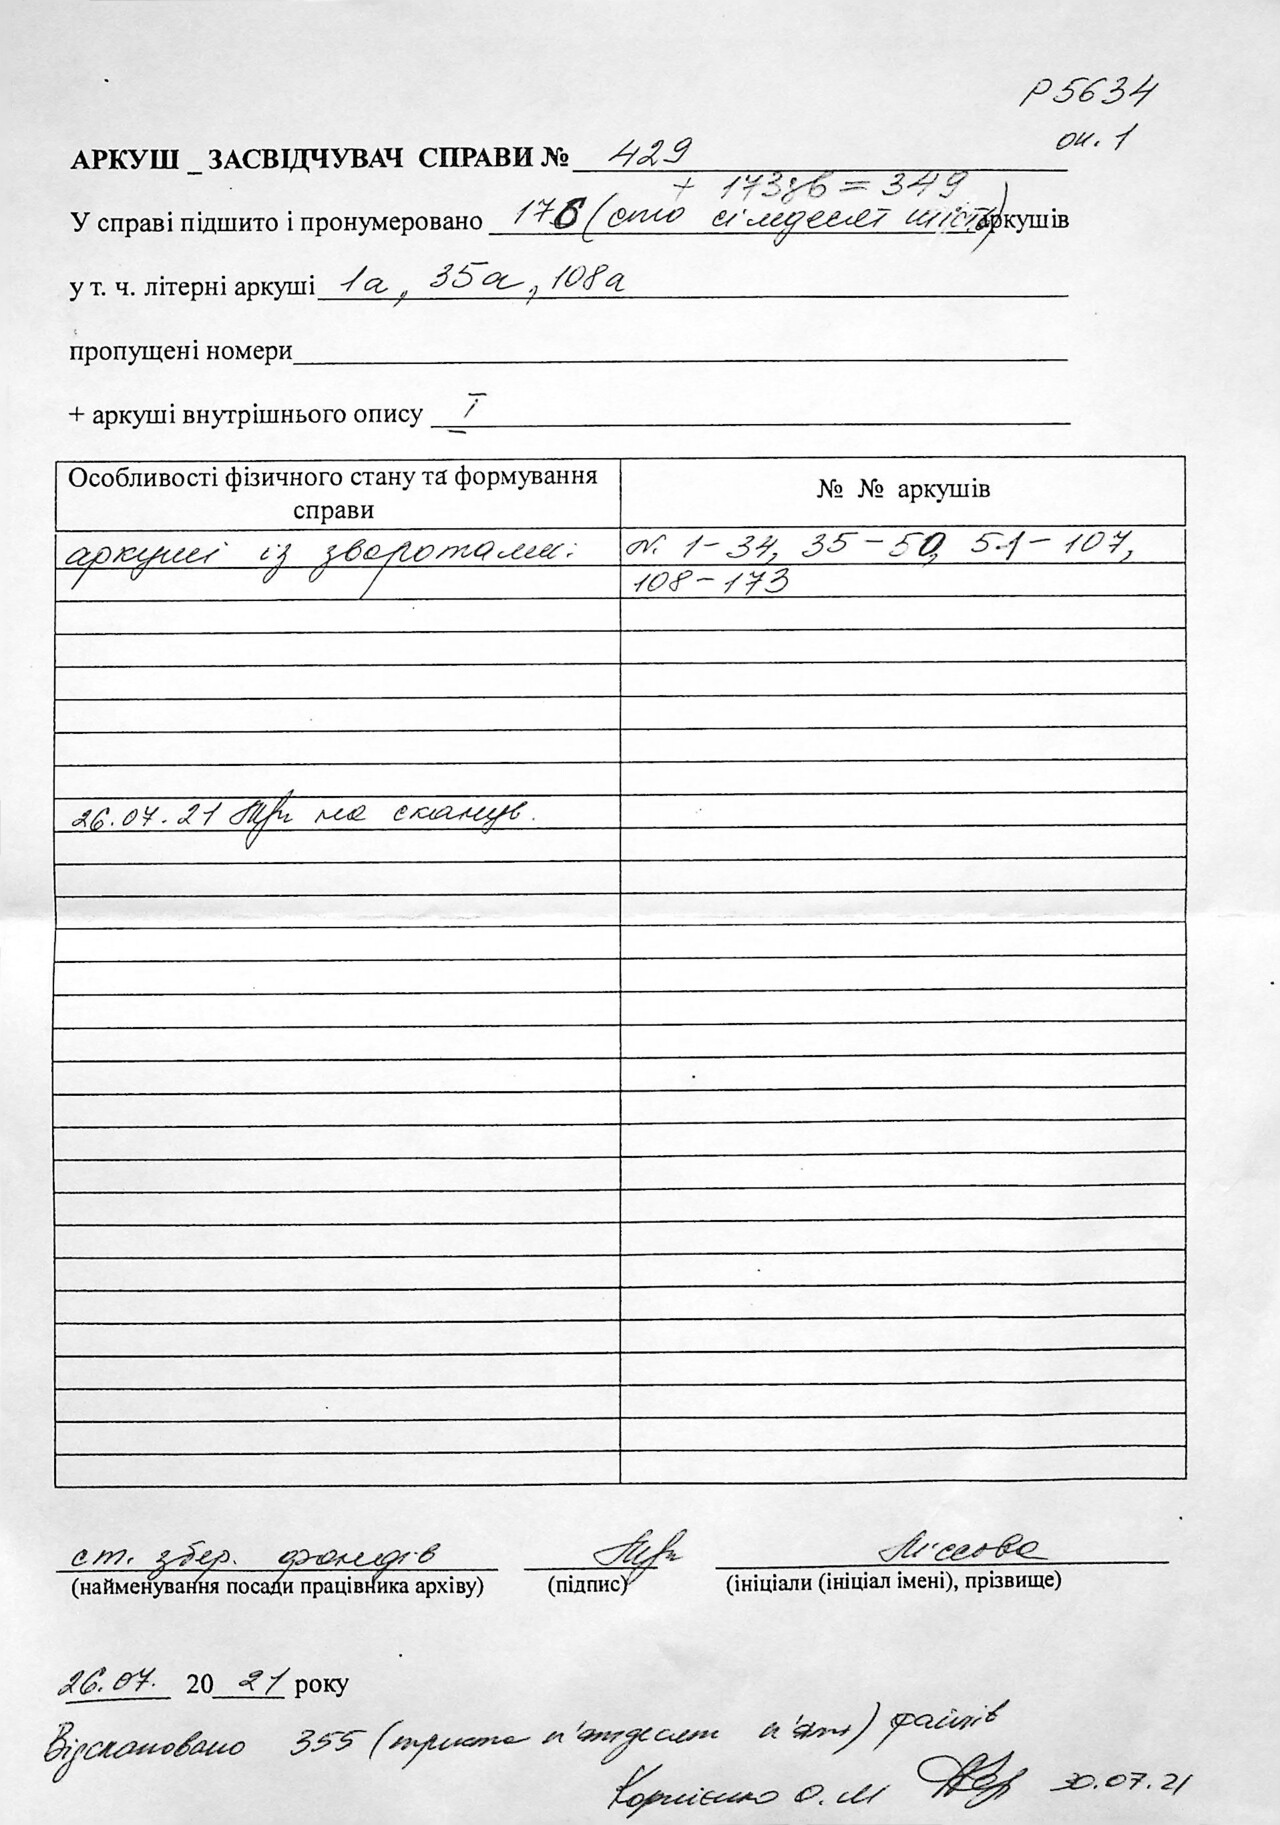 Р5634
оп. 1
АРКУШ _ ЗАСВІДЧУВАЧ СПРАВИ № 429
+ 173зв = 349
У справі підшито і пронумеровано 176 (сто сімдесят шість) аркушів
у т. ч. літерні аркуші 1а, 35а, 108а
пропущені номери
+ аркуші внутрішнього опису I
Особливості фізичного стану та формування справи
№ № аркушів
аркуші із зворотами:
N. 1-34, 35-50, 51-107,
108-173
26.07.21 на сканув.
ст. збер. фондів
(найменування посади працівника архіву) (підпис) (ініціали (ініціал імені), прізвище)
26.07. 2021 року
Відскановано 355 (триста п'ятдесят п'ять) файлів
Корнієнко О.М 30.07.21